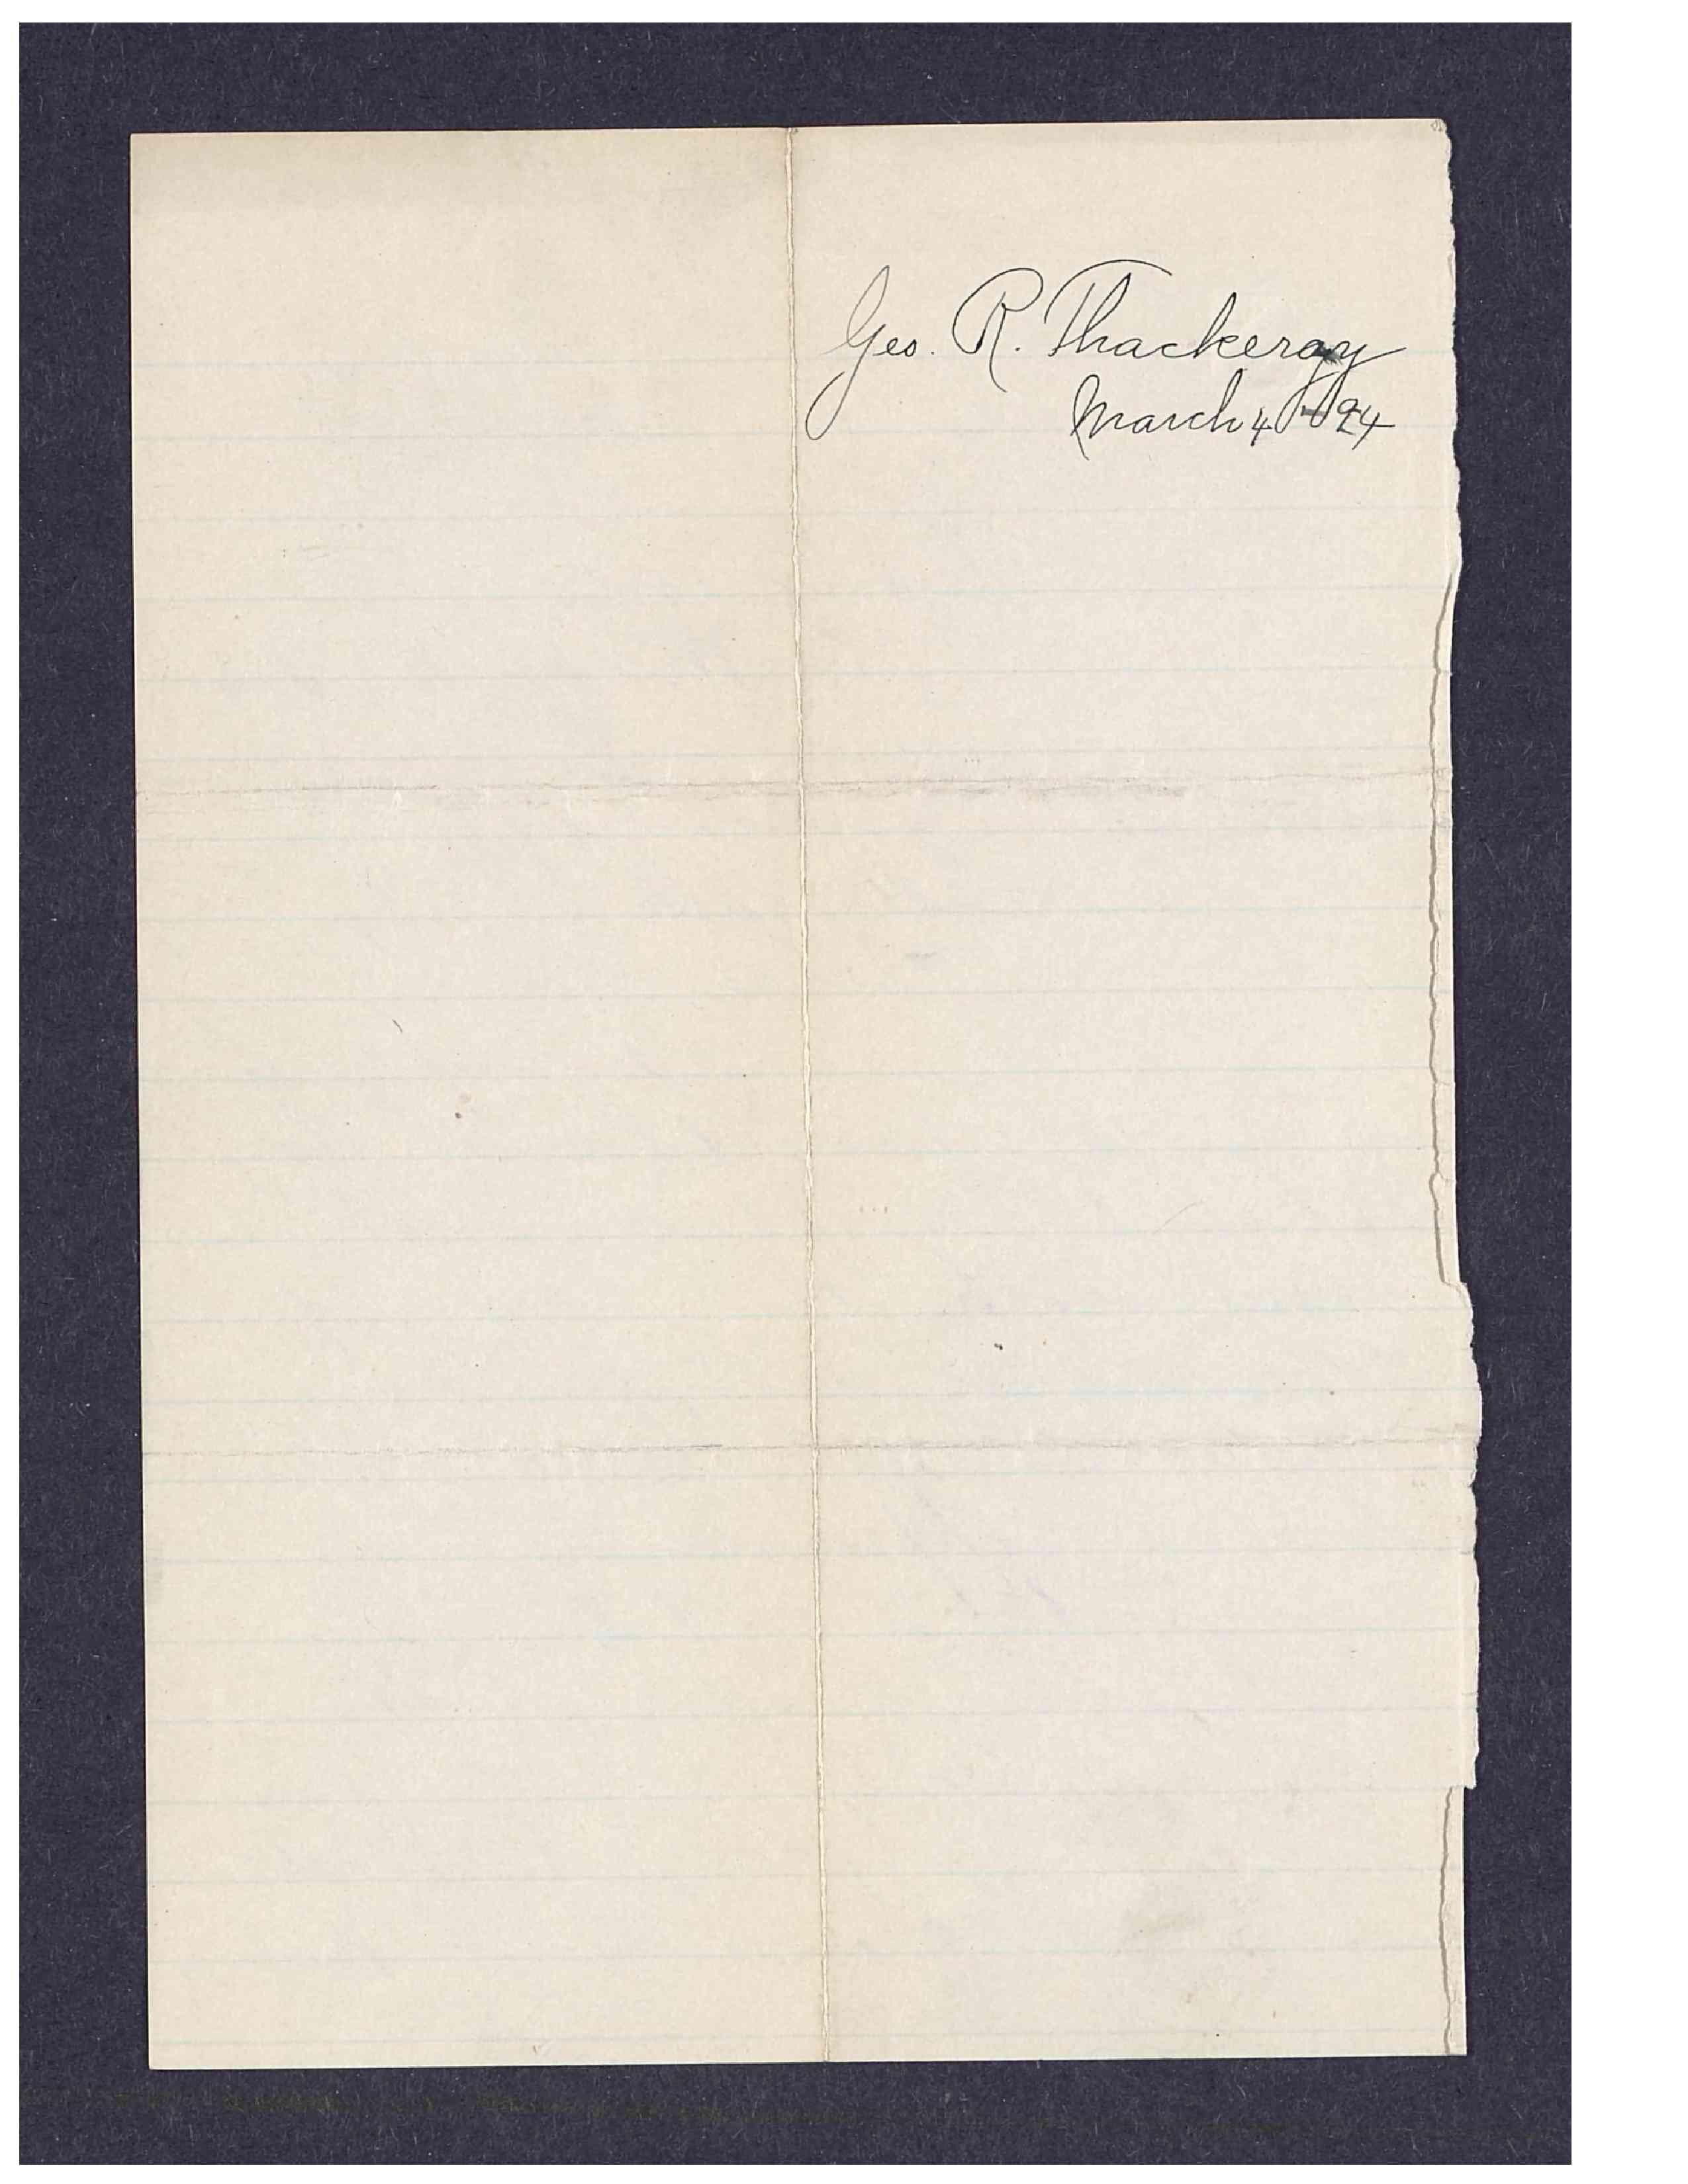 Geo. R. Thackeray
March 4 - 94